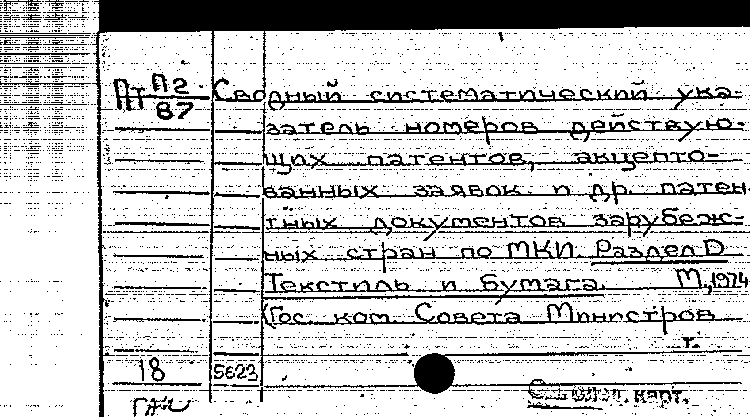 Пт П2 Сводный систематический ука-
87
затель номеров действую-
щих патентов, акцепто-
ванных заявок и др. патен-
тных документов зарубеж-
ных стран по МКИ. Раздел D
Текстиль и бумага. М., 1974
(Гос. ком. Совета Министров
т.
18 5623
карт.